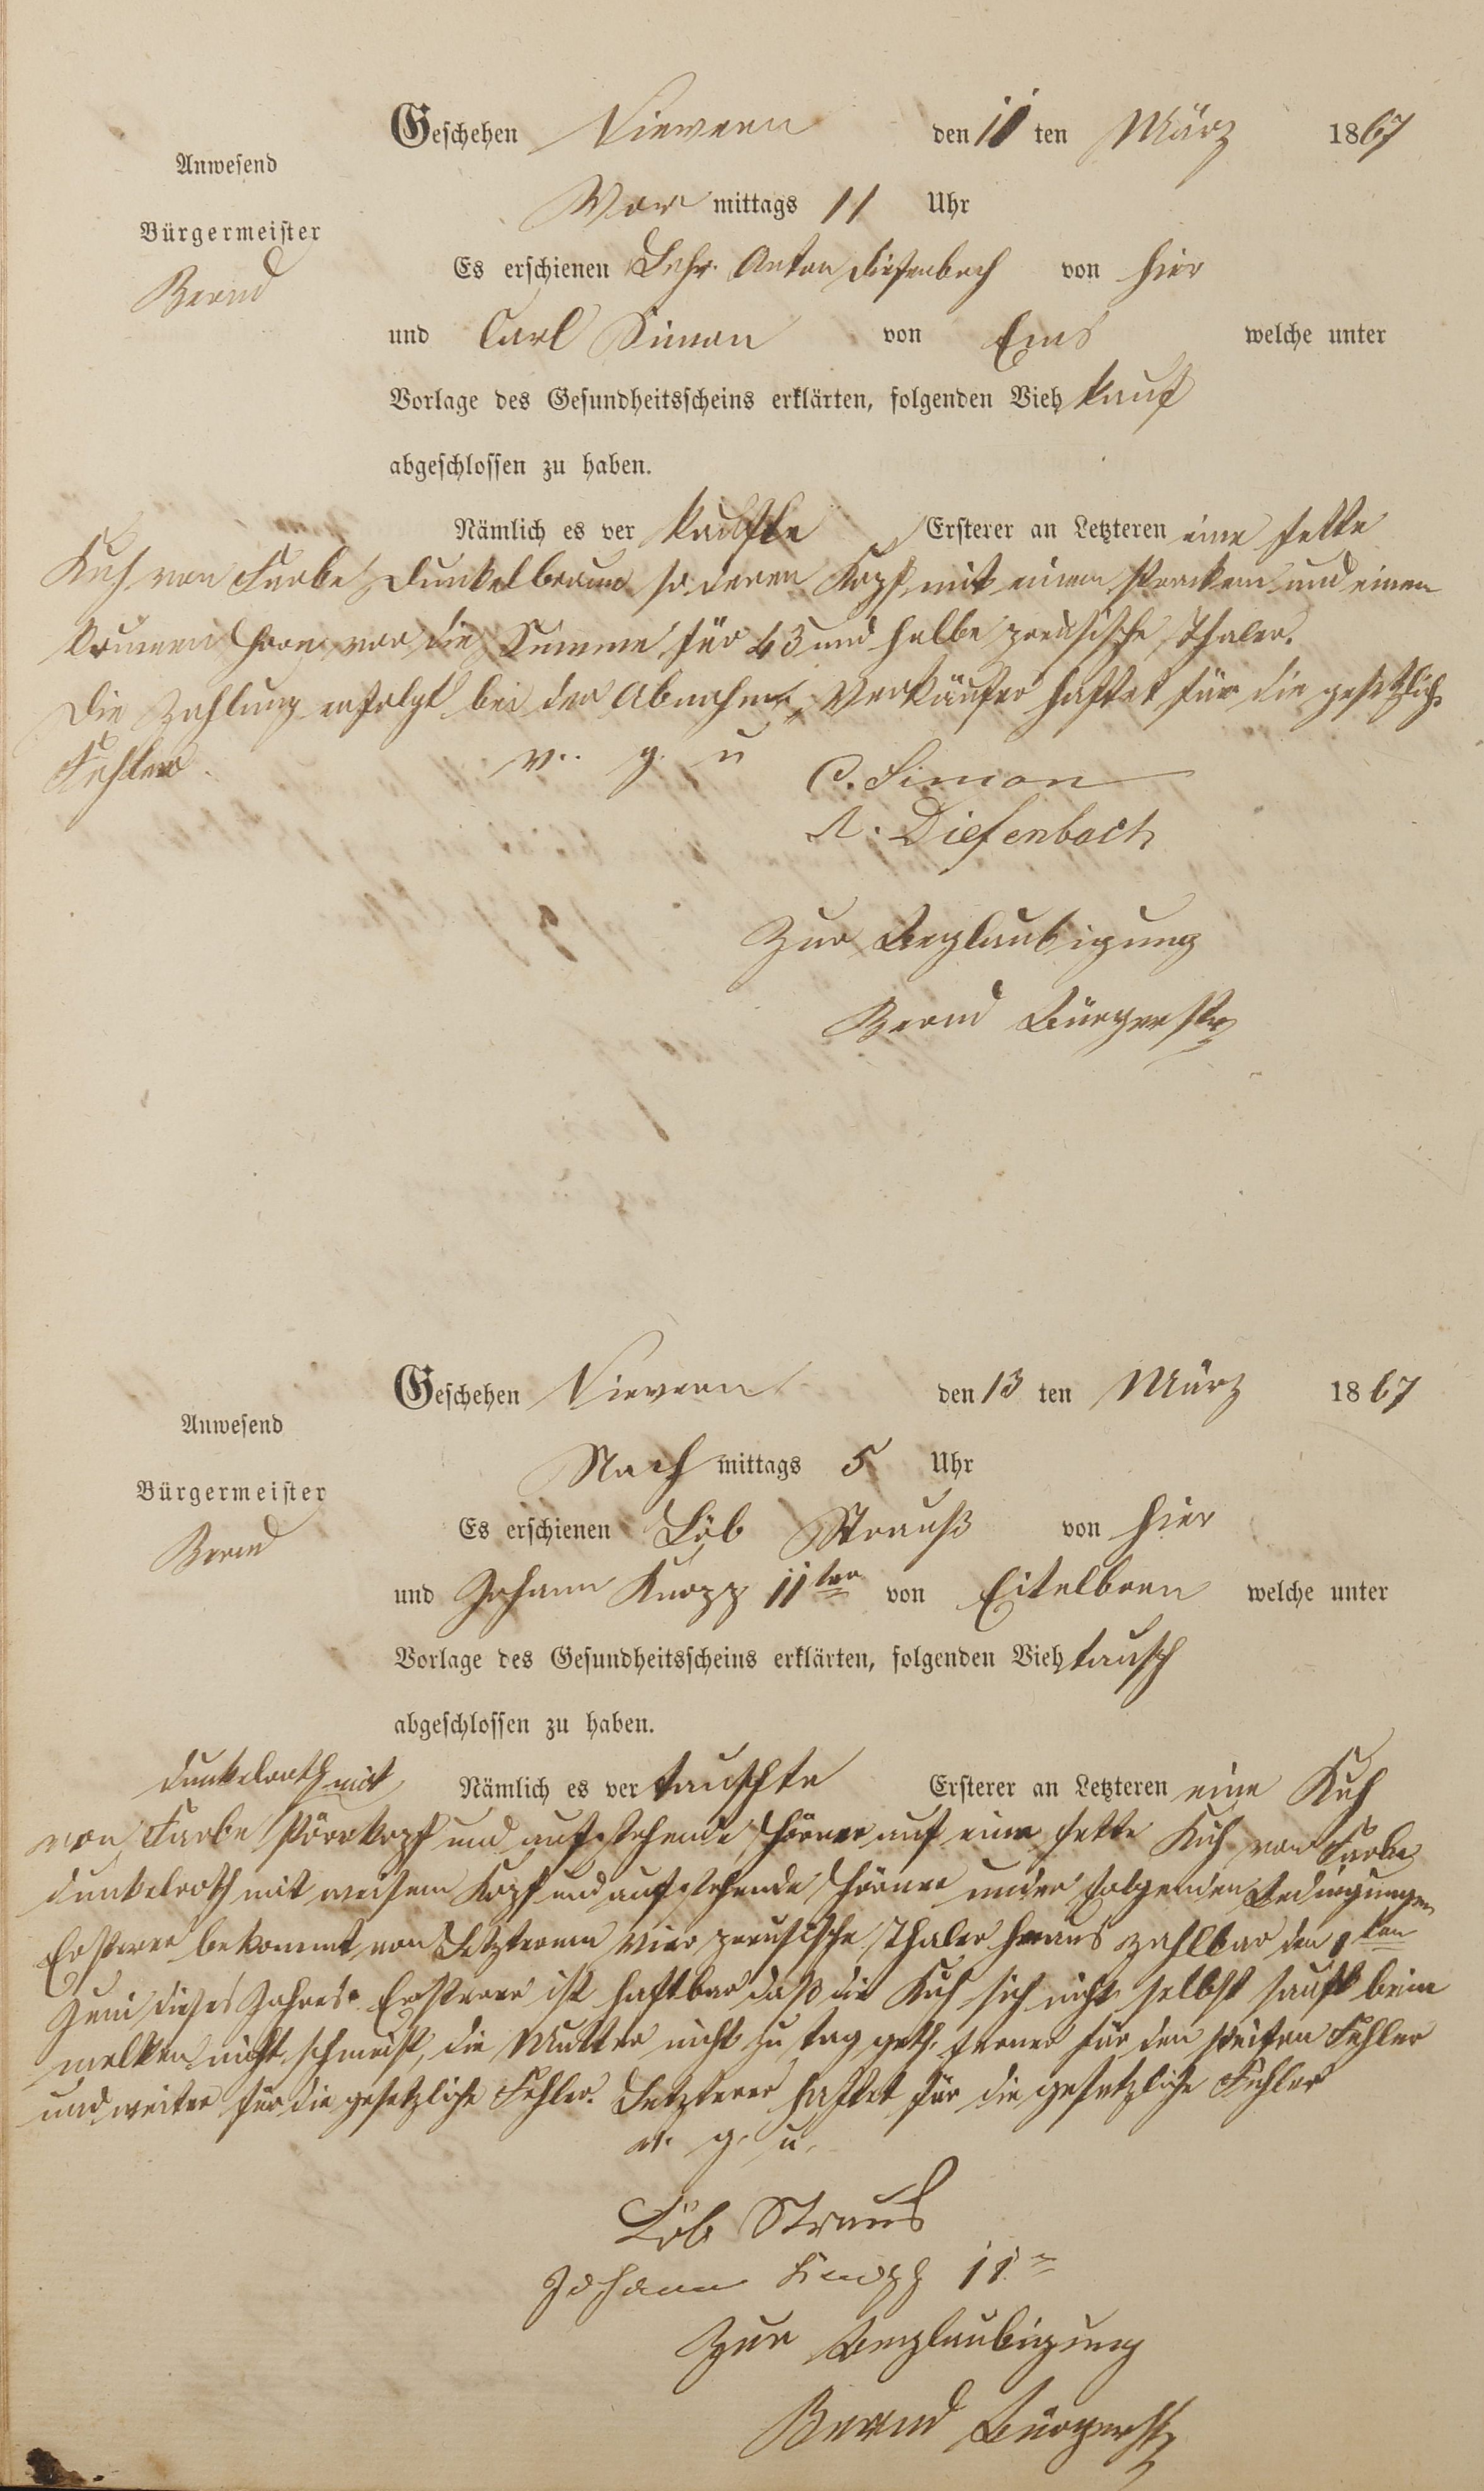 Geschehen Nievern den 11 ten März 1867
Anwesend
Vor mittags 11 Uhr
Bürgermeister
Bernd
Es erschienen Lehr. Anton Diefenbach von hier
und Carl Simon von Ems welche unter
Vorlage des Gesundheitsscheins erklärten, folgenden Vieh kauf
abgeschlossen zu haben.
Nämlich es ver kaufte Ersterer an Letzteren eine fette
Kuh von Farbe dunkelbraun Kopf mit einem und einen
krumen Horn vor die Summe für 43 und halbe preusische Thaler.
Die Zahlung erfolgt bei der Abnahme, Verkäufer haftet für die gesetzlich.
Fehler. v. g. u
C. Simon
A. Diefenbach
Zur Beglaubigung
Bernd Bürgermstr
Geschehen Nievern den 13 ten März 1867
Anwesend
Nach mittags 5 Uhr
Bürgermeister
Bernd
Es erschienen Löb Strauß von hier
und Johann Knopp 11ter von Eitelborn welche unter
Vorlage des Gesundheitsscheins erklärten, folgenden Vieh tausch
abgeschlossen zu haben.
dunkelroth mit
Nämlich es ver tauschte Ersterer an Letzteren eine Kuh
von Farbe und aufstehende Hörner auf eine fette Kuh von Farbe
dunkelroth mit weisem Kopf und aufstehende Hörner under folgenden Bedingungen
Ersterer bekommt von Letzterem vier preusische Thaler heraus zahlbar den 1ten
Juni dieses Jahres. Ersterer ist haftbar daß die Kuh sich nicht selbst sauft beim
melken nicht schmeist, die Mutter nicht zu tag geth. ferner für den Fehler
und weiter für die gesetzliche Fehler. Letzterer haftet für die gesetzliche Fehler
v. g. u.
Löb Straus
Johann Knopp 11r
Zur Beglaubigung
Bernd Bürgermstr